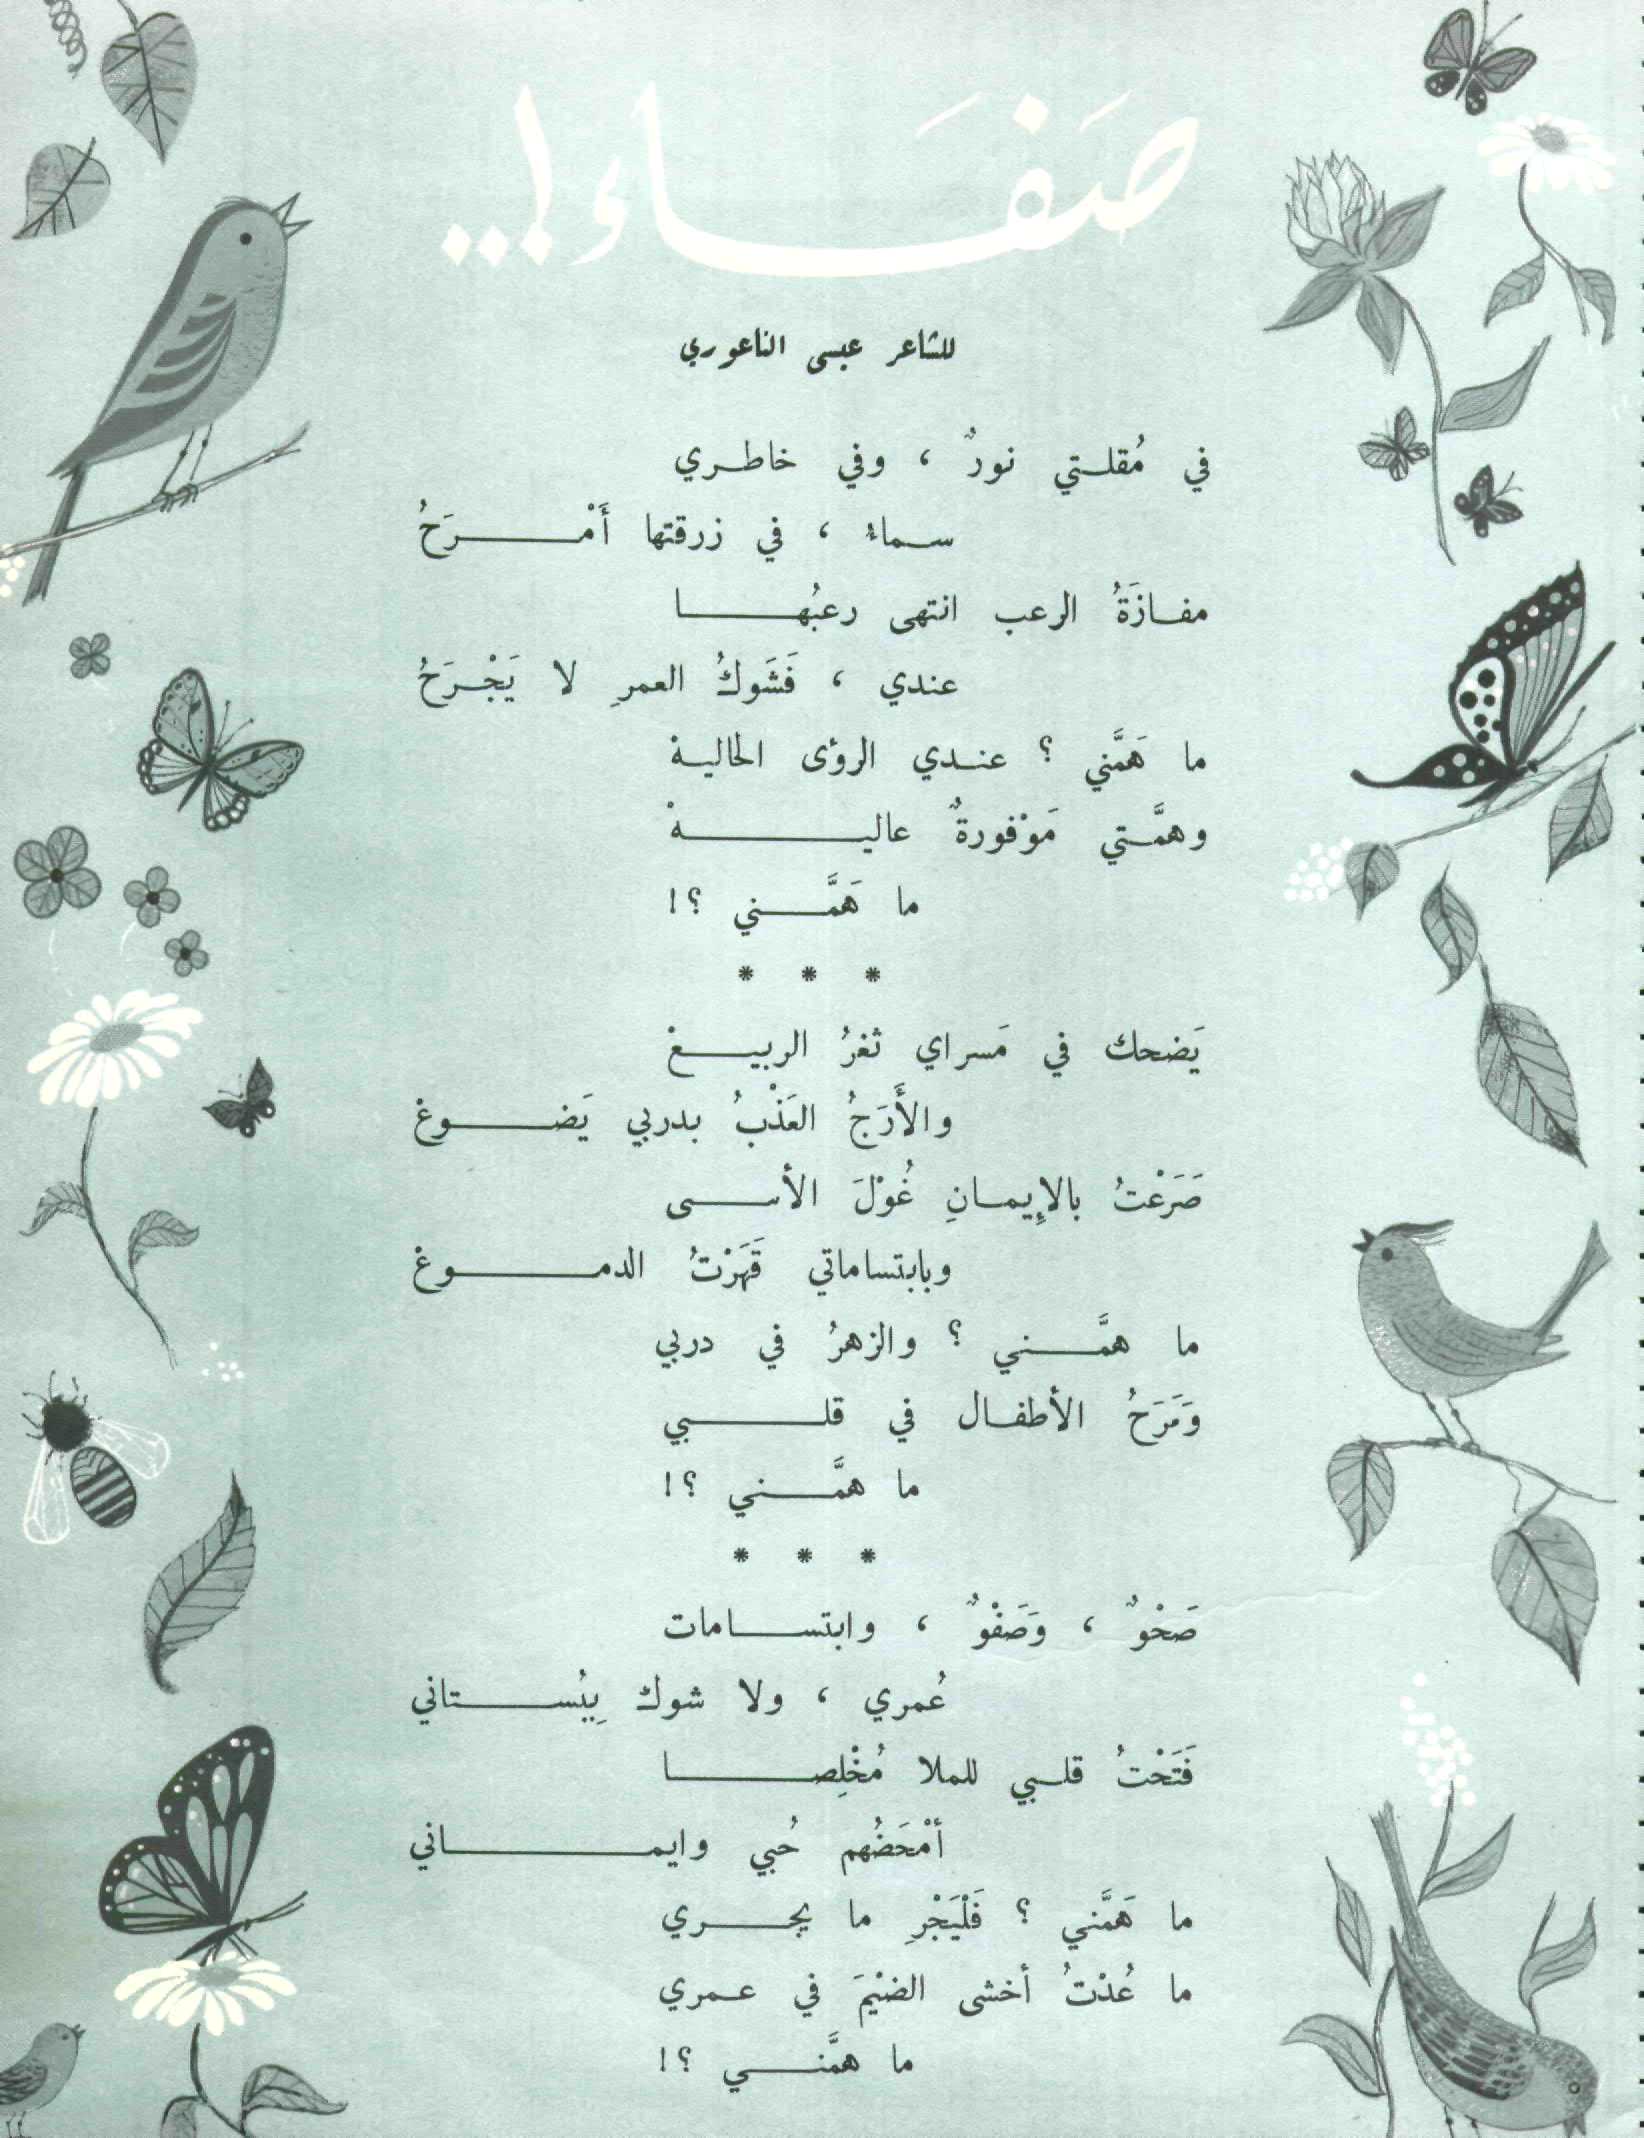 صَفَاء!..
للشاعر عيسى الناعوري
في مُقلتي نورٌ ، وفي خاطري
سماءٌ ، في زرقتها أَمْرَحُ
مفازَةُ الرعب انتهى رعبُها
عندي ، فَشَوكُ العمرِ لا يَجْرَحُ
ما هَمَّني ؟ عندي الرؤى الحاليهْ
وهمَّتي مَوْفورةٌ عاليهْ
ما هَمَّني ؟!
* * *
يَضحك في مَسراي ثغرُ الربيعْ
والأَرَجُ العَذْبُ بدربي يَضوعْ
صَرَعْتُ بالإيمانِ غُوْلَ الأسى
وبابتساماتي قَهَرْتُ الدموعْ
ما همَّني ؟ والزهرُ في دربي
وَمَرَحُ الأطفال في قلبي
ما همَّني ؟!
* * *
صَحْوٌ ، وَصَفْوٌ ، وابتسامات
عُمري ، ولا شوك بِبُستاني
فَتَحْتُ قلبي للملا مُخْلِصا
أمْحَضُهم حُبي وايماني
ما هَمَّني ؟ فَلْيَجْرِ ما يجري
ما عُدْتُ أخشى الضيْمَ في عمري
ما همَّني ؟!